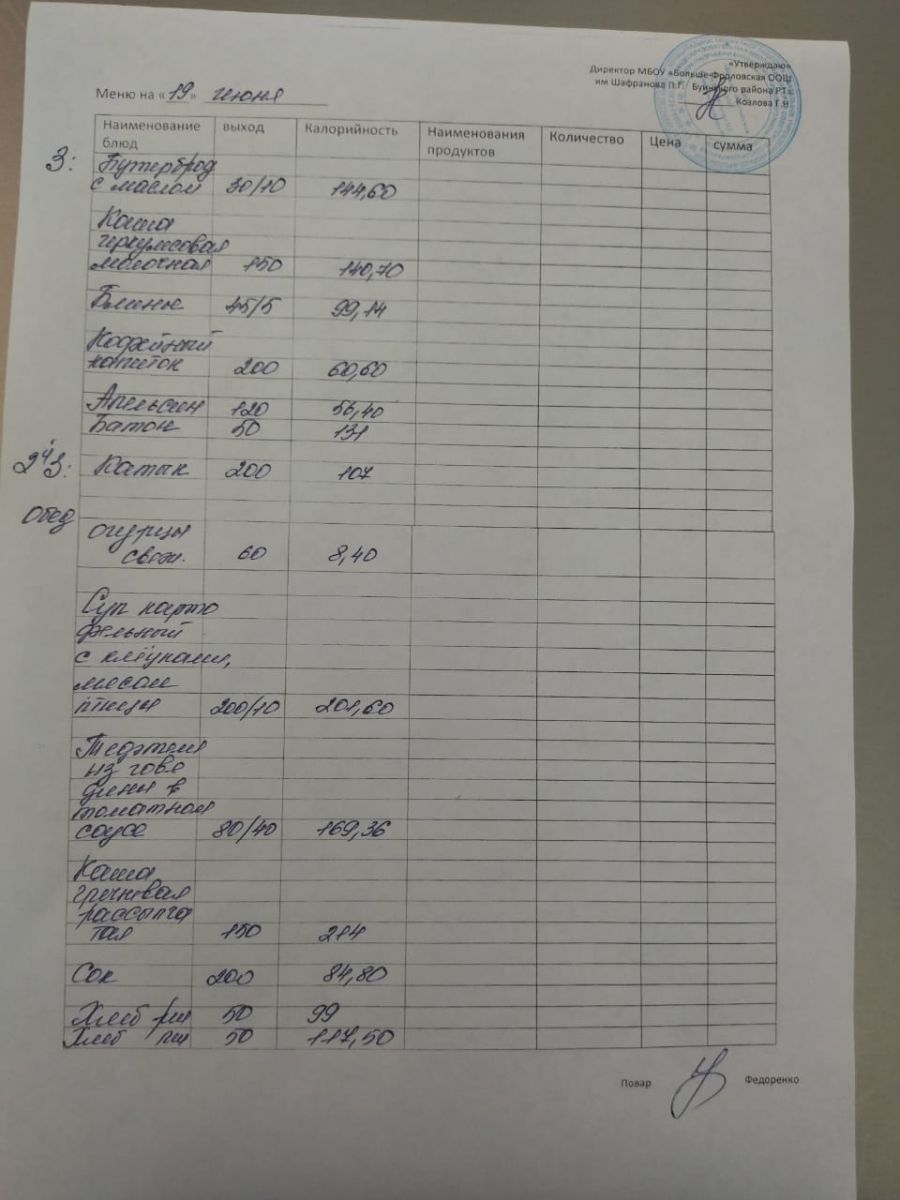 «Утверждаю»
Директор МБОУ «Больше-Фроловская ООШ
им Шафранова П.Г. Буинского района РТ»
Козлова Г.Н.
Меню на «19» июня
Наименование блюд выход Калорийность Наименования продуктов Количество Цена сумма
З: Бутерброд
с маслом 30/10 144,60
Каша
геркулесовая
молочная 150 140,70
Блины 45/5 99,14
Кофейный
напиток 200 60,60
Апельсин 120 56,40
Батон 50 131
2й З: Катык 200 107
Обед
Огурцы
свеж. 60 8,40
Суп карто
фельный
с клёцками,
мясом
птицы 200/10 201,60
Тефтели
из говя
дины в
томатном
соусе 80/40 169,36
Каша
гречневая
рассыпча
тая 150 214
Сок 200 84,80
Хлеб рж 50 99
Хлеб пш 50 117,50
Повар Федоренко